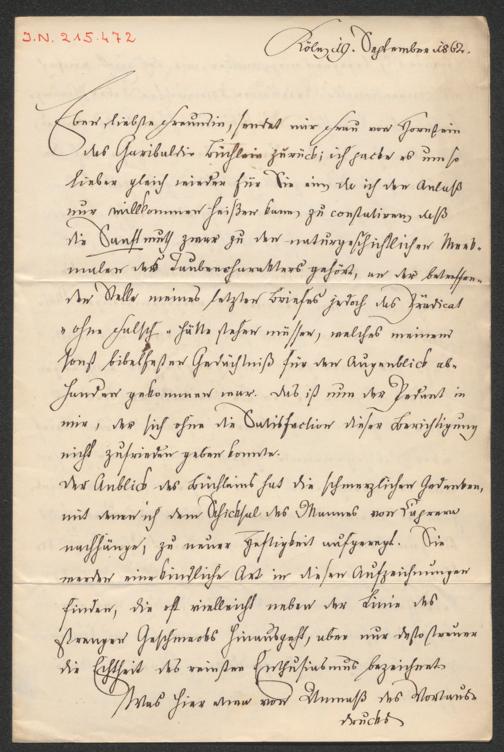 I.N. 215.472
Köln, 19. September 1862.
Eben, liebste Freundin, sendet mir Frau von Hornstein
das Garibaldi-Büchlein zurück; ich packe es um so
lieber gleich wieder für Sie ein, da ich den Anlaß
nur willkommen heißen kann, zu constatiren, daß
die Sanftmuth zwar zu den naturgeschichtlichen Merk-
malen des Taubencharakters gehört, an der betreffen-
den Stelle meines letzten Briefes jedoch das Prädicat
„ohne Falsch“ hätte stehen müssen, welches meinem
sonst bibelfesten Gedächtniß für den Augenblick ab-
handen gekommen war. Das ist nun der Pedant in
mir, der sich ohne die Satisfaction dieser Berichtigung
nicht zufrieden geben konnte.
Der Anblick des Büchleins hat die schmerzlichen Gedanken,
mit denen ich dem Schicksal des Mannes von Caprera
nachhänge, zu neuer Heftigkeit aufgeregt. Sie
werden eine kindliche Art in diesen Aufzeichnungen
finden, die oft vielleicht neben der Linie des
strengen Geschmacks hinausgeht, aber nur desto treuer
die Echtheit des reinsten Enthusiasmus bezeichnet.
Was hier etwa von Unmaß des Wortaus-
drucks